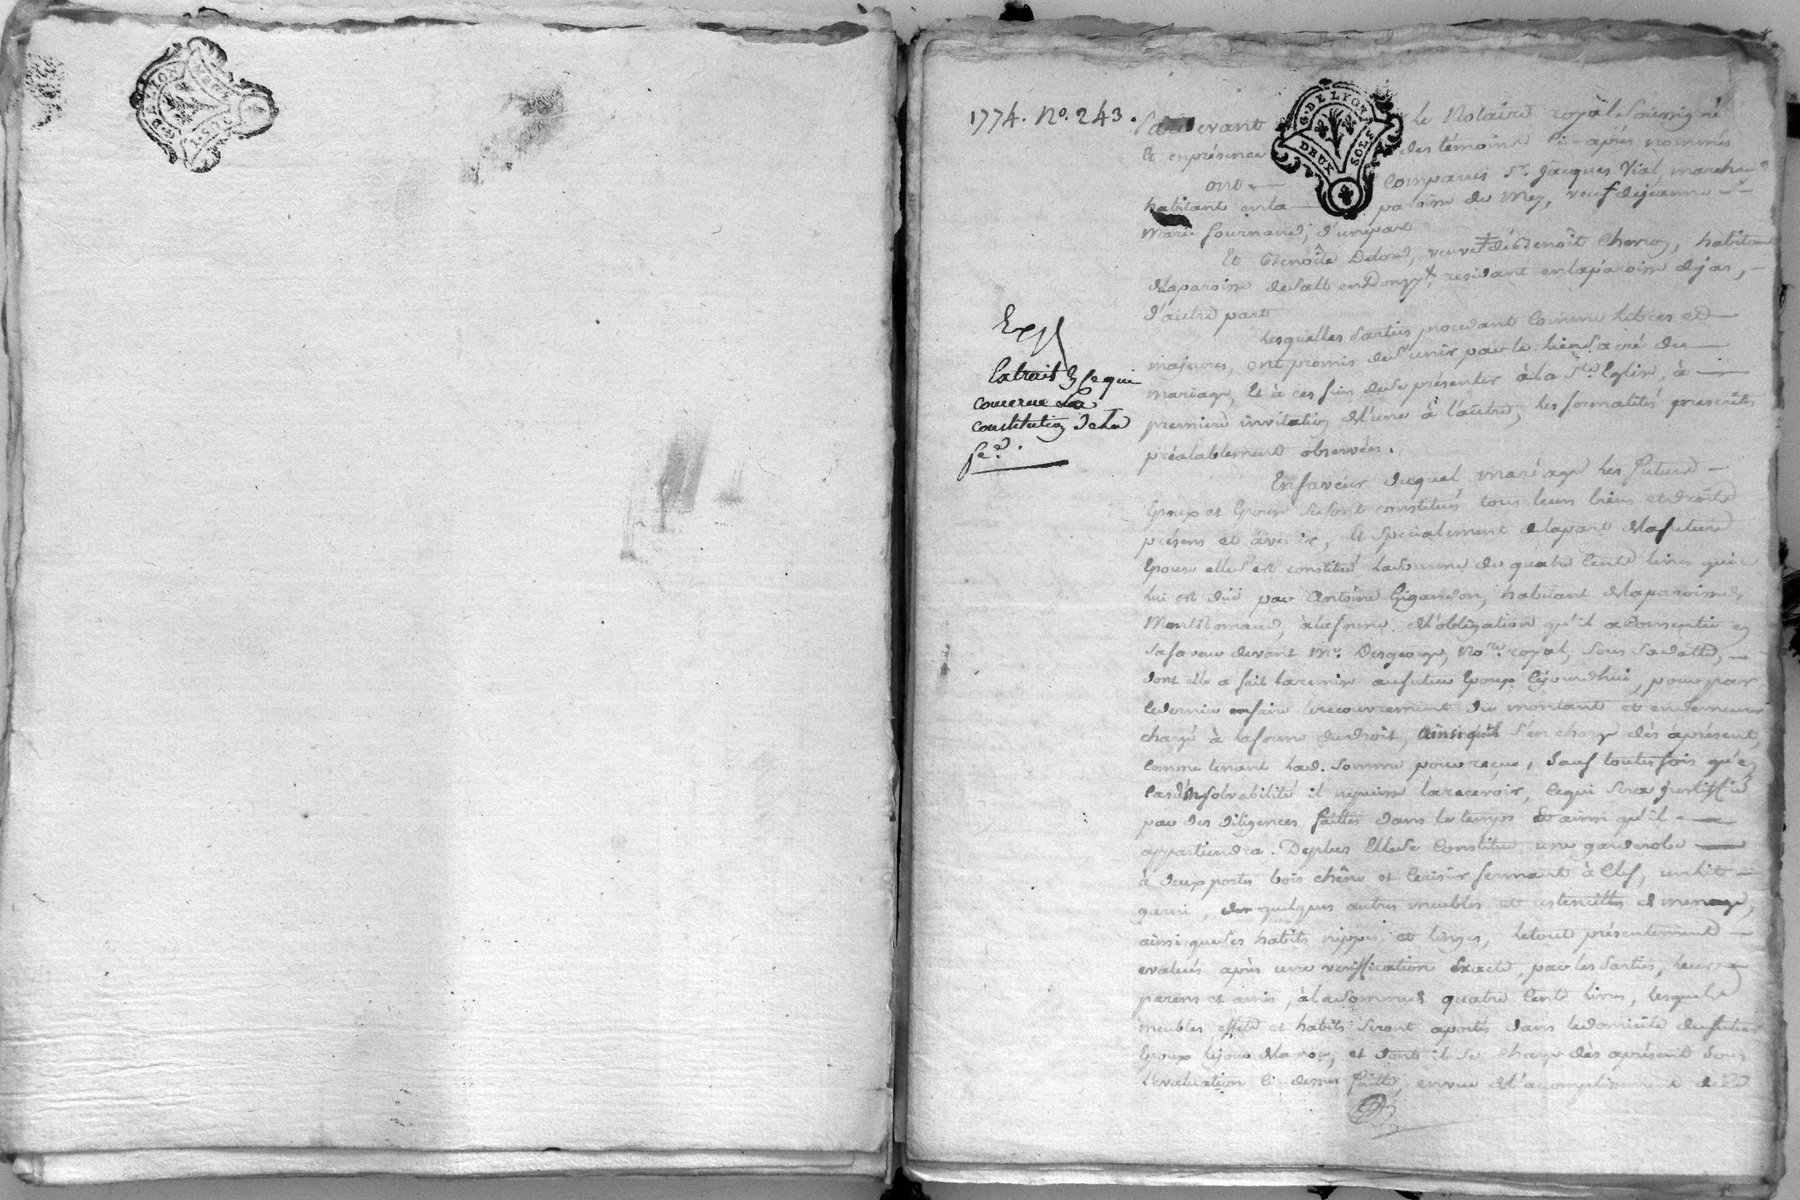 G. DE LYON
1774. No. 243.
G. DE LYON
DEUX SOLS
Pardevant le Notaire royal soussigné
Et en présence des témoins ci-après nommés
ont comparus Sr. Jacques Vial marchand
habitant en la paroisse de Mey, veuf de jeanne
Marie fournand, d'une part
Et Benoîte Delord, veuve de Benoît Cherroy, habitant
de la paroisse de Salt en Donzy, residant en la paroisse de jas,
d'autre part
Exp
Extrait en ce qui
concerne la
constitution de la
fe.
Lesquelles Parties procedant comme libres et
majeures, ont promis de s'unir par le lien sacré du
mariage, Et à ces fins de se présenter à la Ste. Eglise, à
premiere invitation de l'une à l'autre, les formalités prescrites
préalablement observées.
En faveur duquel mariage les futurs
Epoux et Epouse se sont constitués tous leurs biens et droits
présens et avenir, Et spécialement de la part de la future
Epouse elle s'est constitué la somme de quatre Cents livres qui
lui est düe par Antoine Gigandon, habitant de la paroisse de
Montromand, à la forme de l'obligation qu'il a consentie en
sa faveur devant Me. Desgeorge, Nore. royal, sous sa datte,
dont elle a fait la remise au futur Epoux cejourdhui, pour par
le dernier en faire le recouvrement du montant et en demeurer
chargé à la forme du droit, ainsi qu'il s'en charge dès àprésent,
comme tenant lad. somme pour reçue, sauf toutes fois qu'en
cas d'insolvabilité il ne puisse la recevoir, ce qui sera justiffié
par des diligences faittes dans le temps et ainsi qu'il
appartiendra. Deplus Elle se Constitue une garderobe
à deux portes bois chêne et cerisier fermant à Clef, un lit
garni, des quelques autres meubles et ustencilles de menage,
ainsi que ses habits nippes et linges, le tout présentement
evalués après une veriffication Exacte, par les Parties, leurs
parens et amis, à la somme de quatre Cents livres, lesquels
meubles effets et habits seront aportés dans le domicile du futur
Epoux le jour de la noce, et dont il se charge dès aprésent sous
l'evaluation ci-dessus faitte, en vue de l'acomplissement dud.